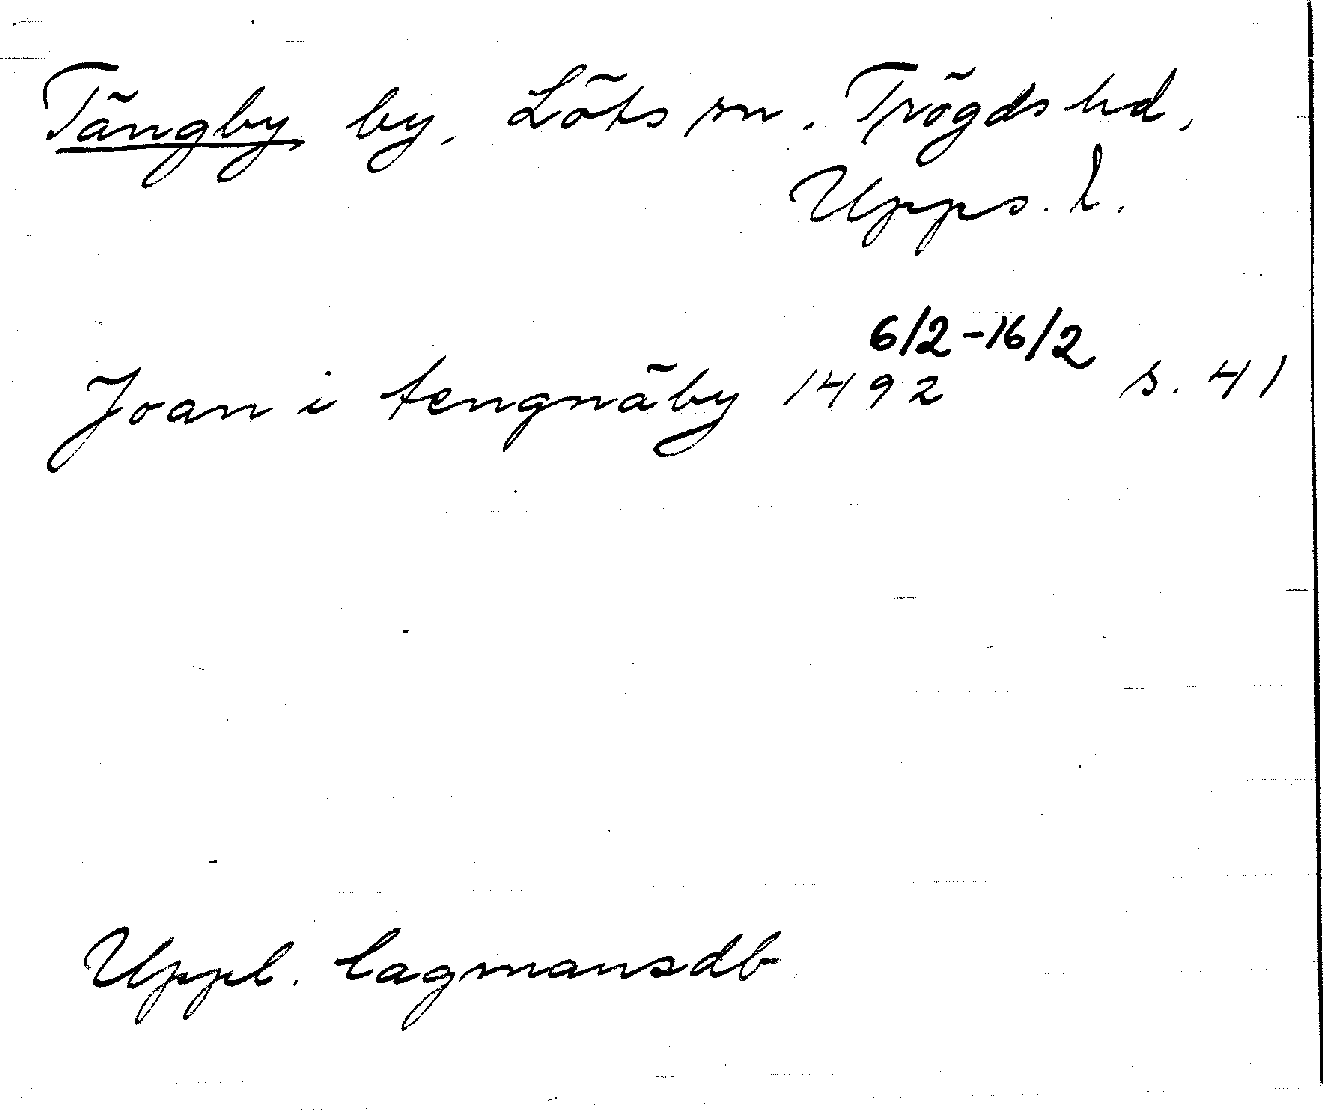 Tängby by, Löts sn. Trögds hd,
Upps. l.
6/2-16/2
Joan i tengnäby 1492 s. 41
Uppl. lagmansdb